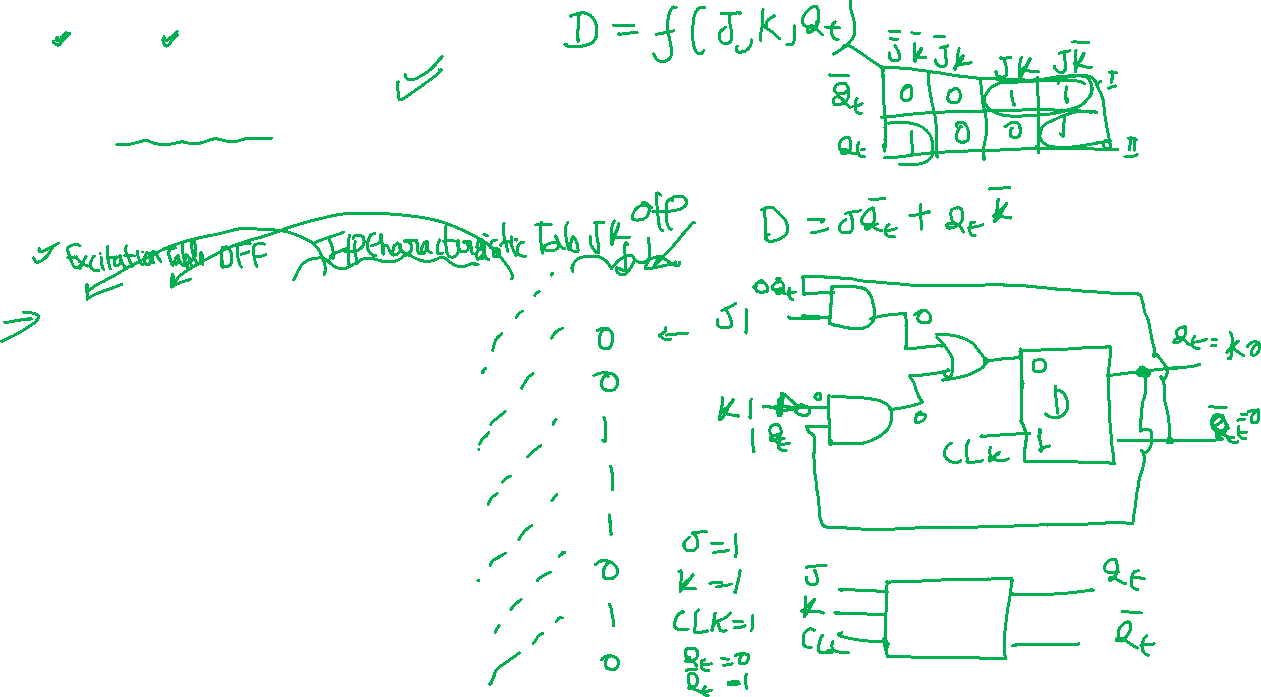 D = f(J, K, Qt)
J̅K̅ J̅K JK JK̅
Q̅t 0 0 1 1 I
Qt 1 0 0 1 II
D = JQ̅t + QtK̅
Excitation Table DFF
I/P Characteristic Tab JK
0 Qt
J 1
0
0
0
1
1
1
0
1
0
0
K 1
0
1 Qt
0
0
D
CLK 1
Qt = 1 0
Q̅t = 0
J = 1
K = 1
CLK = 1
Qt = 0
Q̅t = 1
J
K
CLK
Qt
Q̅t